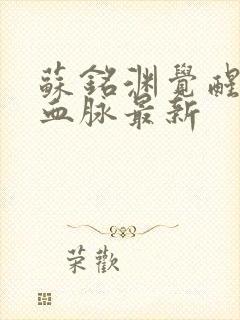 蘇銘淵覺醒
血脈最新
荣歡